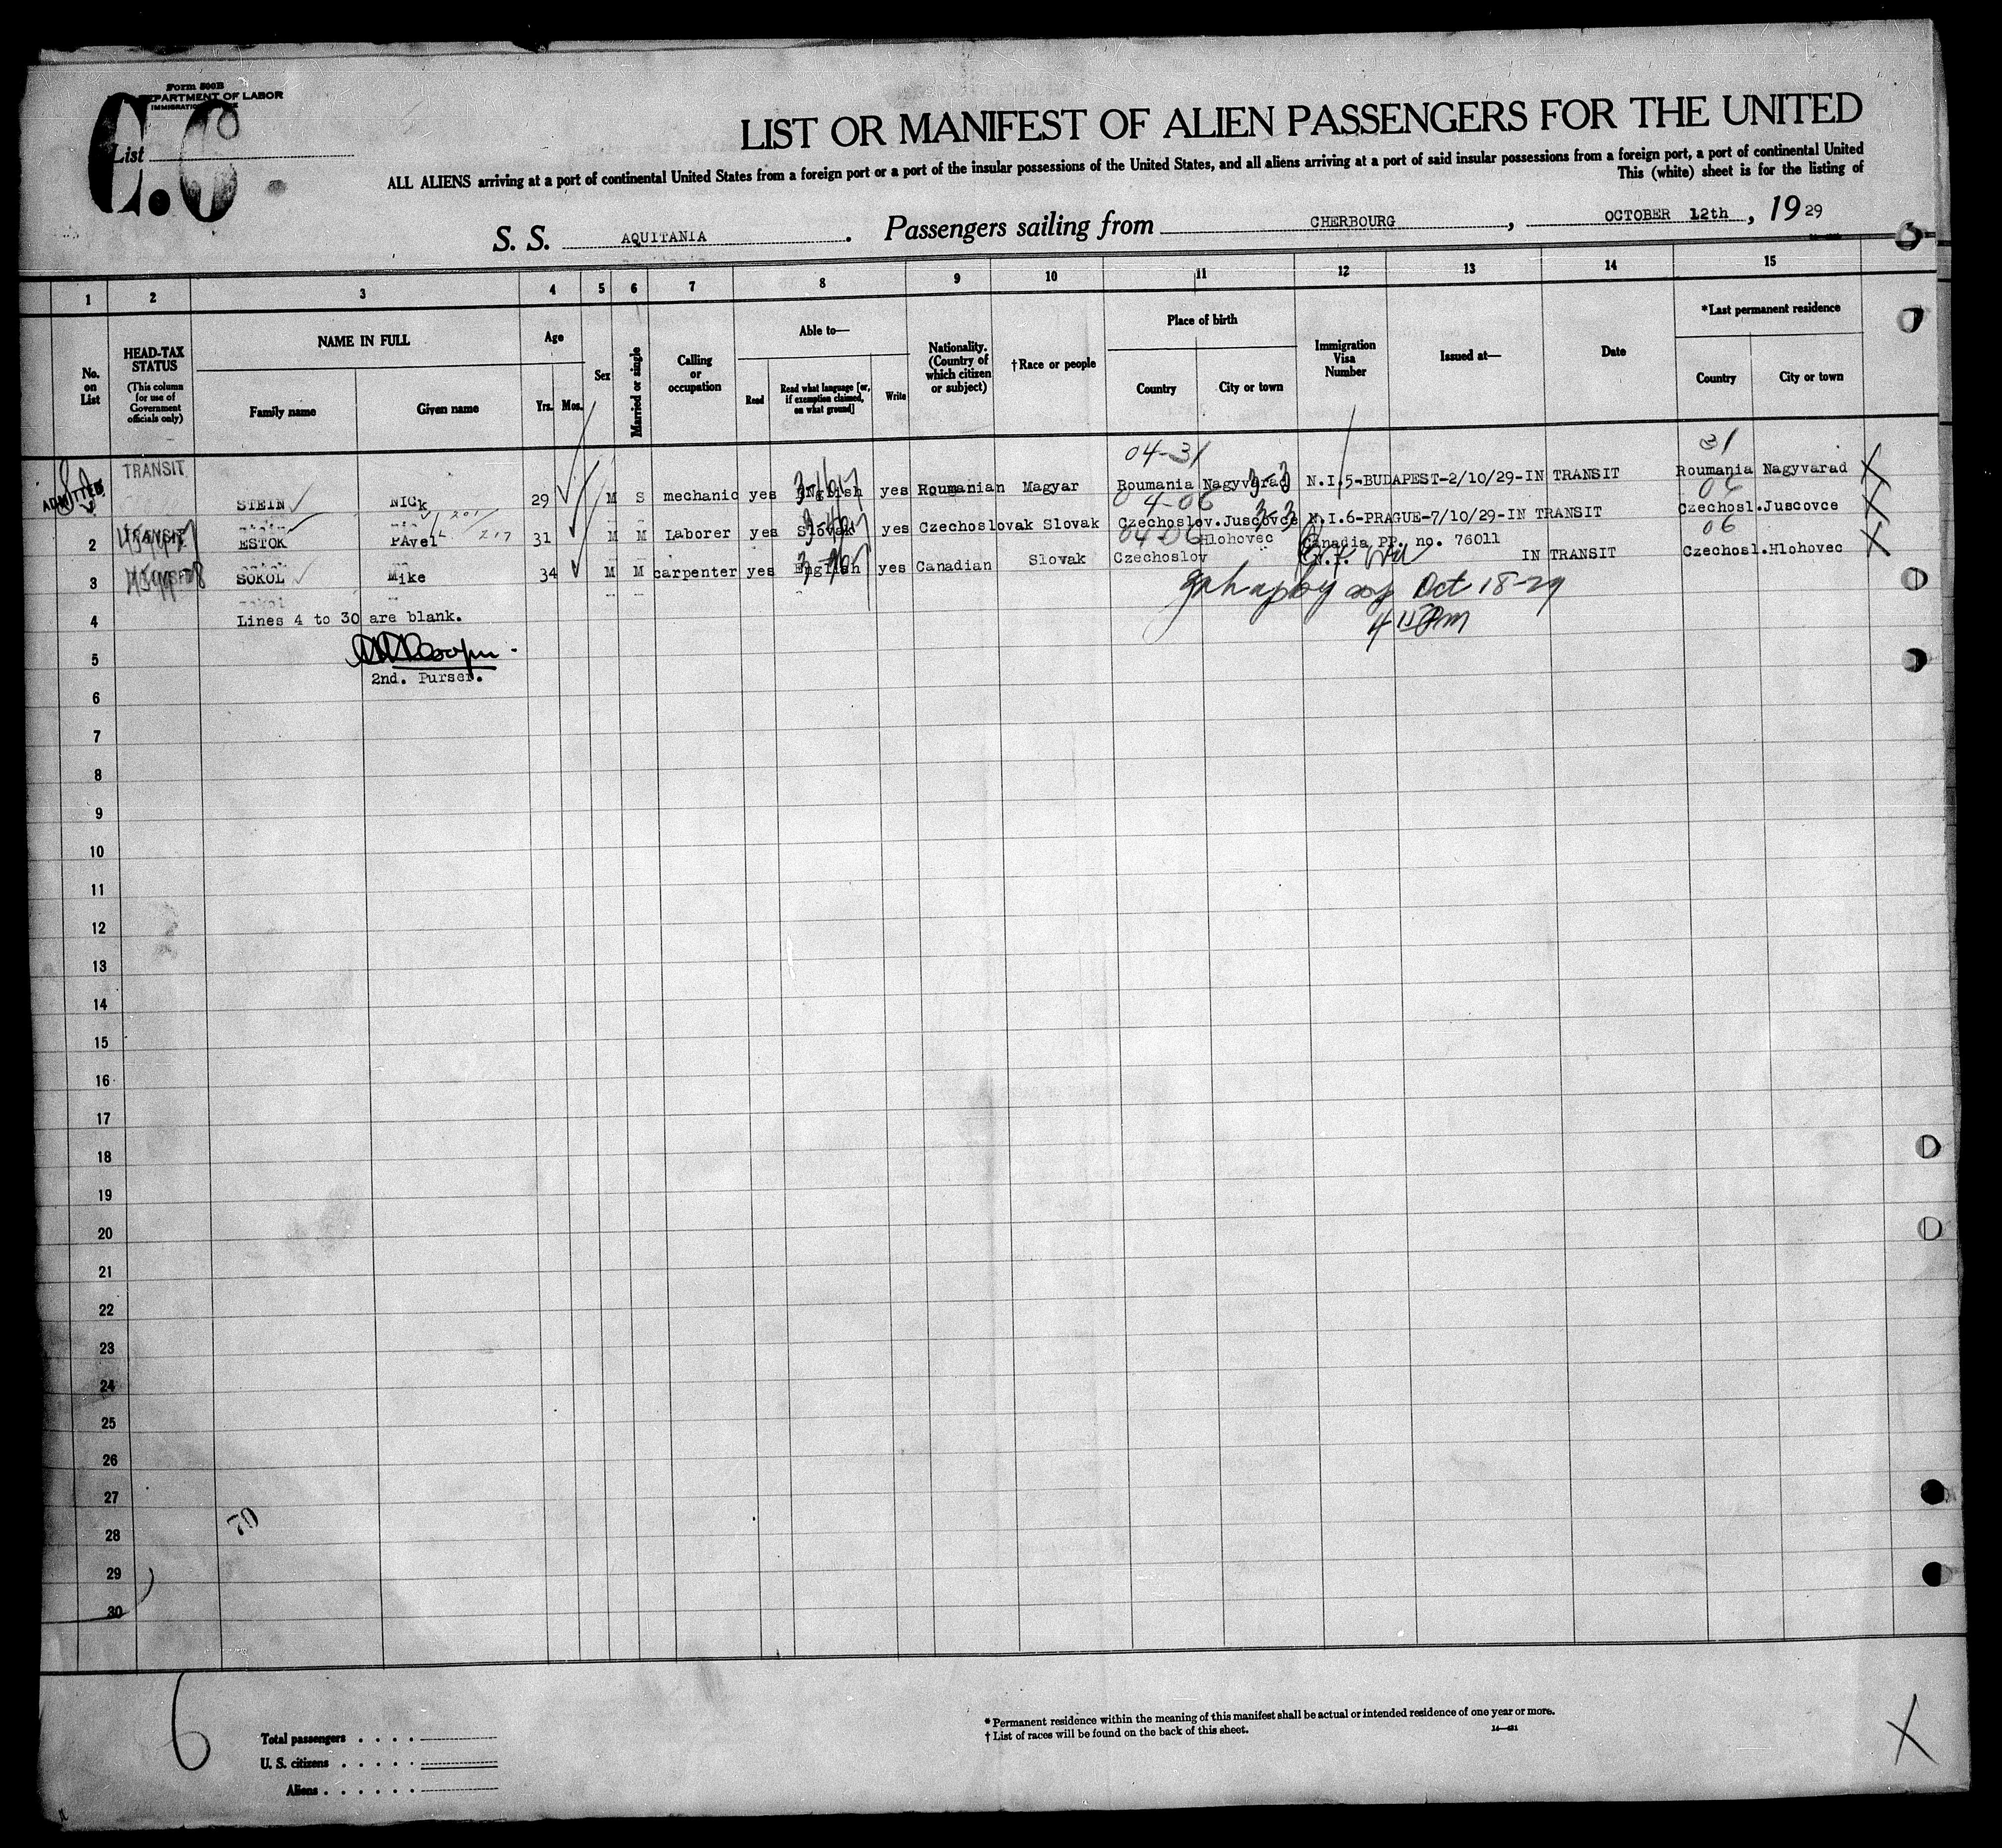 Form 500B
DEPARTMENT OF LABOR
IMMIGRATION
C.O
List
LIST OR MANIFEST OF ALIEN PASSENGERS FOR THE UNITED
ALL ALIENS arriving at a port of continental United States from a foreign port or a port of the insular possessions of the United States, and all aliens arriving at a port of said insular possessions from a foreign port, a port of continental United
This (white) sheet is for the listing of
S. S. AQUITANIA. Passengers sailing from CHERBOURG, OCTOBER 12th, 1929
1 2 3 4 5 6 7 8 9 10 11 12 13 14 15
No. on List
HEAD-TAX STATUS
(This column for use of Government officials only)
NAME IN FULL
Family name
Given name
Age
Yrs. Mos.
Sex
Married or single
Calling or occupation
Able to—
Read
Read what language [or, if exemption claimed, on what ground]
Write
Nationality. (Country of which citizen or subject)
†Race or people
Place of birth
Country
City or town
Immigration Visa Number
Issued at—
Date
*Last permanent residence
Country
City or town
04-31 31
ADMITTED TRANSIT STEIN NICk 29 M S mechanic yes English yes Roumanian Magyar Roumania Nagyvarad N.I.5-BUDAPEST-2/10/29-IN TRANSIT Roumania Nagyvarad
04-06 06
2 TRANSIT ESTOK PAvel 31 M M Laborer yes Slovak yes Czechoslovak Slovak Czechoslov.Juscovce N.I.6-PRAGUE-7/10/29-IN TRANSIT Czechosl.Juscovce
04-06 06
3 SOKOL Mike 34 M M carpenter yes English yes Canadian Slovak Czechoslov Hlohovec Canadia PP. no. 76011 IN TRANSIT Czechosl.Hlohovec
Oct 18-29
4 Lines 4 to 30 are blank.
5
2nd. Purser.
6
7
8
9
10
11
12
13
14
15
16
17
18
19
20
21
22
23
24
25
26
27
70
28
29
30
6
Total passengers
U. S. citizens
Aliens
* Permanent residence within the meaning of this manifest shall be actual or intended residence of one year or more.
† List of races will be found on the back of this sheet.
X